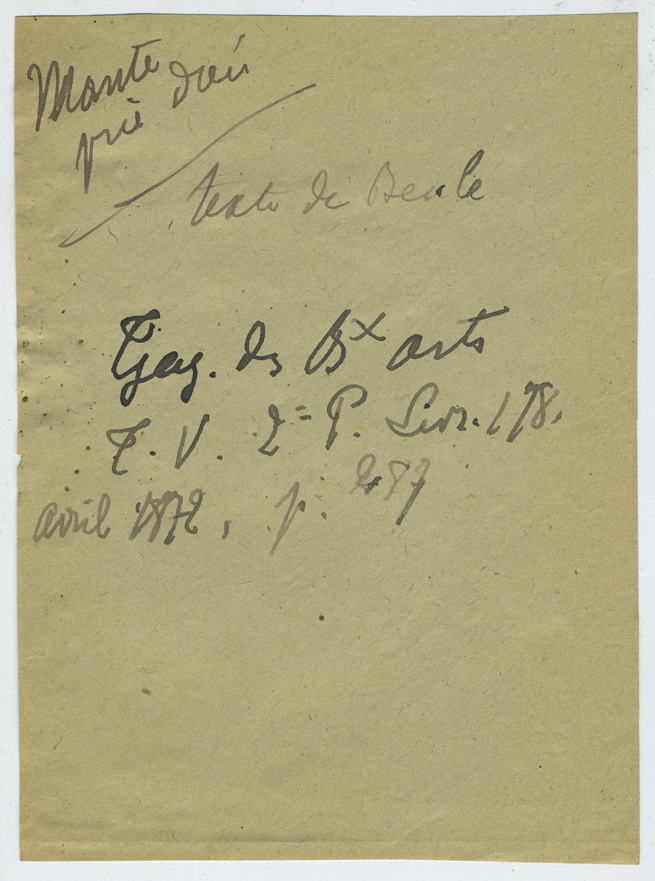 Mante
prie dieu
texte de Beulé
Gaz. des Bx arts
T. V. 2= P. Livr. 178.
avril 1872, p. 287